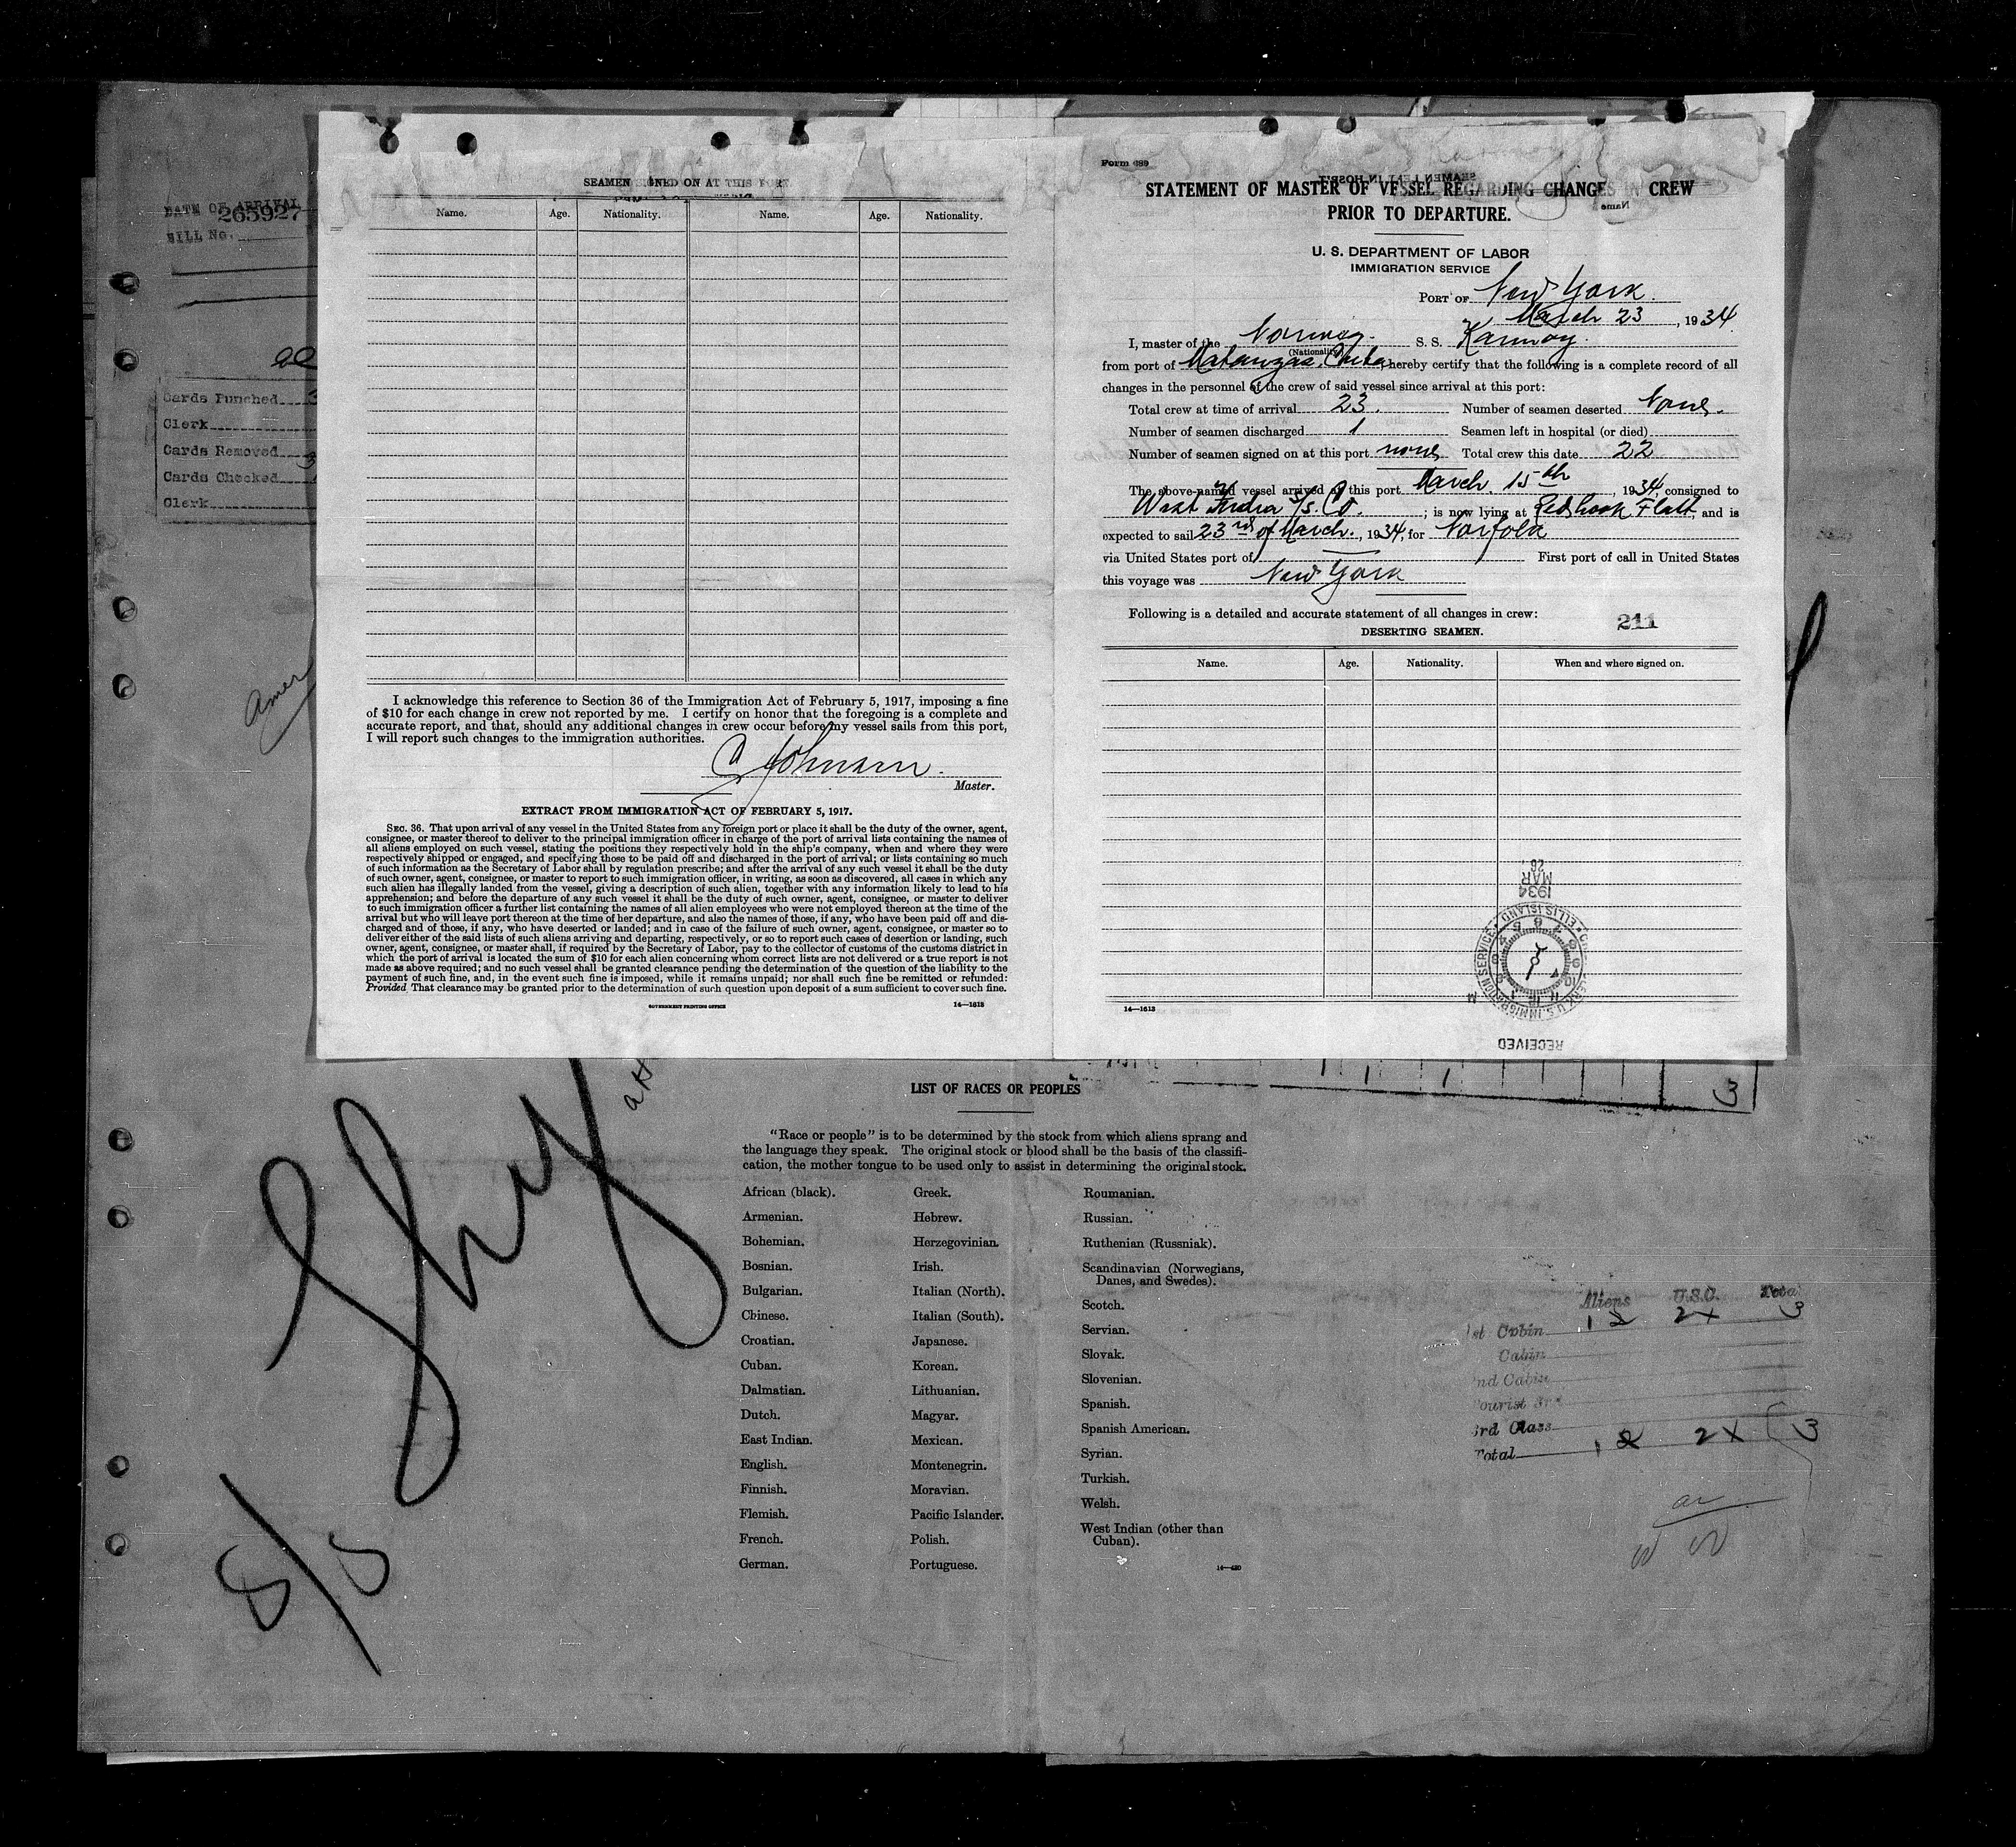 DATE OF ARRIVAL
265927
BILL No.
Cards Punched 3
Clerk
Cards Removed 3
Cards Checked
Clerk
SEAMEN SIGNED ON AT THIS PORT
Name. Age. Nationality. Name. Age. Nationality.
I acknowledge this reference to Section 36 of the Immigration Act of February 5, 1917, imposing a fine
of $10 for each change in crew not reported by me. I certify on honor that the foregoing is a complete and
accurate report, and that, should any additional changes in crew occur before my vessel sails from this port,
I will report such changes to the immigration authorities.
Master.
EXTRACT FROM IMMIGRATION ACT OF FEBRUARY 5, 1917.
SEC. 36. That upon arrival of any vessel in the United States from any foreign port or place it shall be the duty of the owner, agent,
consignee, or master thereof to deliver to the principal immigration officer in charge of the port of arrival lists containing the names of
all aliens employed on such vessel, stating the positions they respectively hold in the ship's company, when and where they were
respectively shipped or engaged, and specifying those to be paid off and discharged in the port of arrival; or lists containing so much
of such information as the Secretary of Labor shall by regulation prescribe; and after the arrival of any such vessel it shall be the duty
of such owner, agent, consignee, or master to report to such immigration officer, in writing, as soon as discovered, all cases in which any
such alien has illegally landed from the vessel, giving a description of such alien, together with any information likely to lead to his
apprehension; and before the departure of any such vessel it shall be the duty of such owner, agent, consignee, or master to deliver
to such immigration officer a further list containing the names of all alien employees who were not employed thereon at the time of the
arrival but who will leave port thereon at the time of her departure, and also the names of those, if any, who have been paid off and dis-
charged and of those, if any, who have deserted or landed; and in case of the failure of such owner, agent, consignee, or master so to
deliver either of the said lists of such aliens arriving and departing, respectively, or so to report such cases of desertion or landing, such
owner, agent, consignee, or master shall, if required by the Secretary of Labor, pay to the collector of customs of the customs district in
which the port of arrival is located the sum of $10 for each alien concerning whom correct lists are not delivered or a true report is not
made as above required; and no such vessel shall be granted clearance pending the determination of the question of the liability to the
payment of such fine, and, in the event such fine is imposed, while it remains unpaid; nor shall such fine be remitted or refunded:
Provided That clearance may be granted prior to the determination of such question upon deposit of a sum sufficient to cover such fine.
GOVERNMENT PRINTING OFFICE 14—1613
Form 689
STATEMENT OF MASTER OF VESSEL REGARDING CHANGES IN CREW
PRIOR TO DEPARTURE.
U. S. DEPARTMENT OF LABOR
IMMIGRATION SERVICE
PORT OF New York.
March 23, 1934
I, master of the Norweg. S. S. Karmoy.
(Nationality)
from port of Matanzas, Cuba, hereby certify that the following is a complete record of all
changes in the personnel of the crew of said vessel since arrival at this port:
Total crew at time of arrival 23. Number of seamen deserted None.
Number of seamen discharged 1 Seamen left in hospital (or died)
Number of seamen signed on at this port none Total crew this date 22
The above-named vessel arrived at this port March. 15th, 1934, consigned to
West India S/S. Co.; is now lying at Redhook Flatt, and is
expected to sail 23rd of March., 1934, for Norfolk
via United States port of — First port of call in United States
this voyage was New York
Following is a detailed and accurate statement of all changes in crew:
211
DESERTING SEAMEN.
Name. Age. Nationality. When and where signed on.
1934 MAR 26
CLERK U.S. IMMIGRATION SERVICE ELLIS ISLAND
RECEIVED
14—1613
3
LIST OF RACES OR PEOPLES
"Race or people" is to be determined by the stock from which aliens sprang and
the language they speak. The original stock or blood shall be the basis of the classifi-
cation, the mother tongue to be used only to assist in determining the original stock.
African (black). Greek. Roumanian.
Armenian. Hebrew. Russian.
Bohemian. Herzegovinian. Ruthenian (Russniak).
Bosnian. Irish. Scandinavian (Norwegians,
Danes, and Swedes).
Bulgarian. Italian (North). Scotch.
Chinese. Italian (South). Servian.
Croatian. Japanese. Slovak.
Cuban. Korean. Slovenian.
Dalmatian. Lithuanian. Spanish.
Dutch. Magyar. Spanish American.
East Indian. Mexican. Syrian.
English. Montenegrin. Turkish.
Finnish. Moravian. Welsh.
Flemish. Pacific Islander. West Indian (other than
Cuban).
French. Polish.
German. Portuguese.
14—430
Aliens U.S.C. Total
1st Cabin 1 2 2 X 3
Cabin
2nd Cabin
Tourist 3rd
3rd Class
Total 1 2 2 X 3